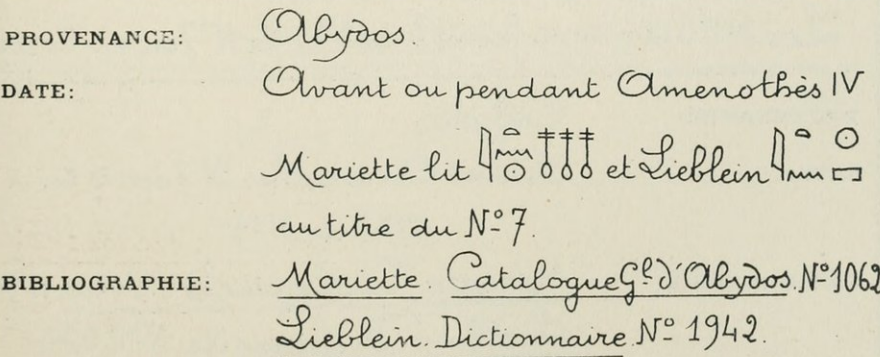 PROVENANCE: Abydos.
DATE: Avant ou pendant Amenothès IV
Mariette lit et Lieblein
au titre du Nº 7.
BIBLIOGRAPHIE: Mariette. Catalogue Gᵉˡ d'Abydos. Nº 1062
Lieblein. Dictionnaire Nº 1942.